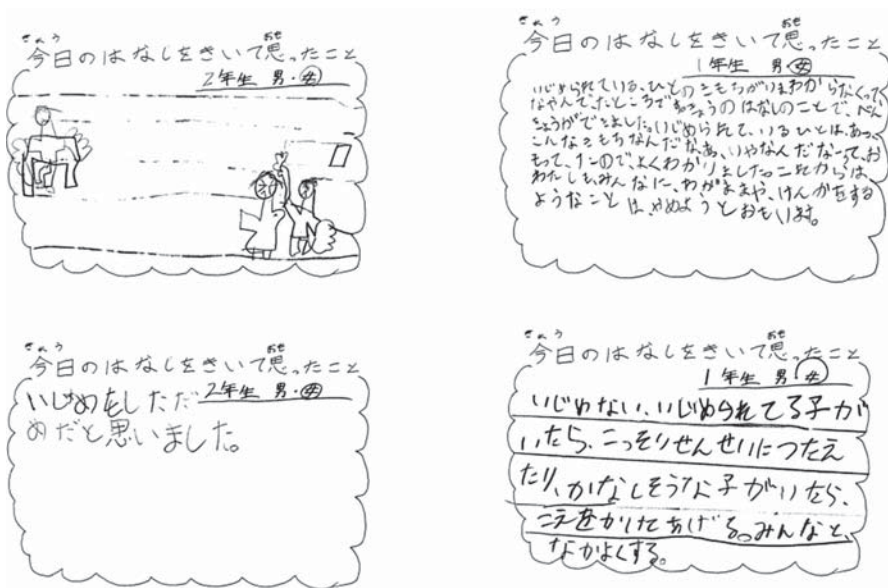 きょう
今日のはなしをきいて思ったこと
2年生 男・女
きょう
今日のはなしをきいて思ったこと
1年生 男・女
いじめられている、ひとのきもちがいまわからなくって、
なやんでいたところできょうのはなしのことで、べん
きょうができました。いじめられて、いるひとは、あっ、
こんなきもちなんだなあ、いやなんだなーって、お
もって、たので、よくわかりました。これからは、
わたしも、みんなに、わがままや、けんかをする
ようなことは、やめようとおもいます。
きょう
今日のはなしをきいて思ったこと
2年生 男・女
いじめをしただ
めだと思いました。
きょう
今日のはなしをきいて思ったこと
1年生 男・女
いじめない、いじめられてる子が
いたら、こっそりせんせいにつたえ
たり、かなしそうな子がいたら、
こえをかけてあげる。みんなと、
なかよくする。